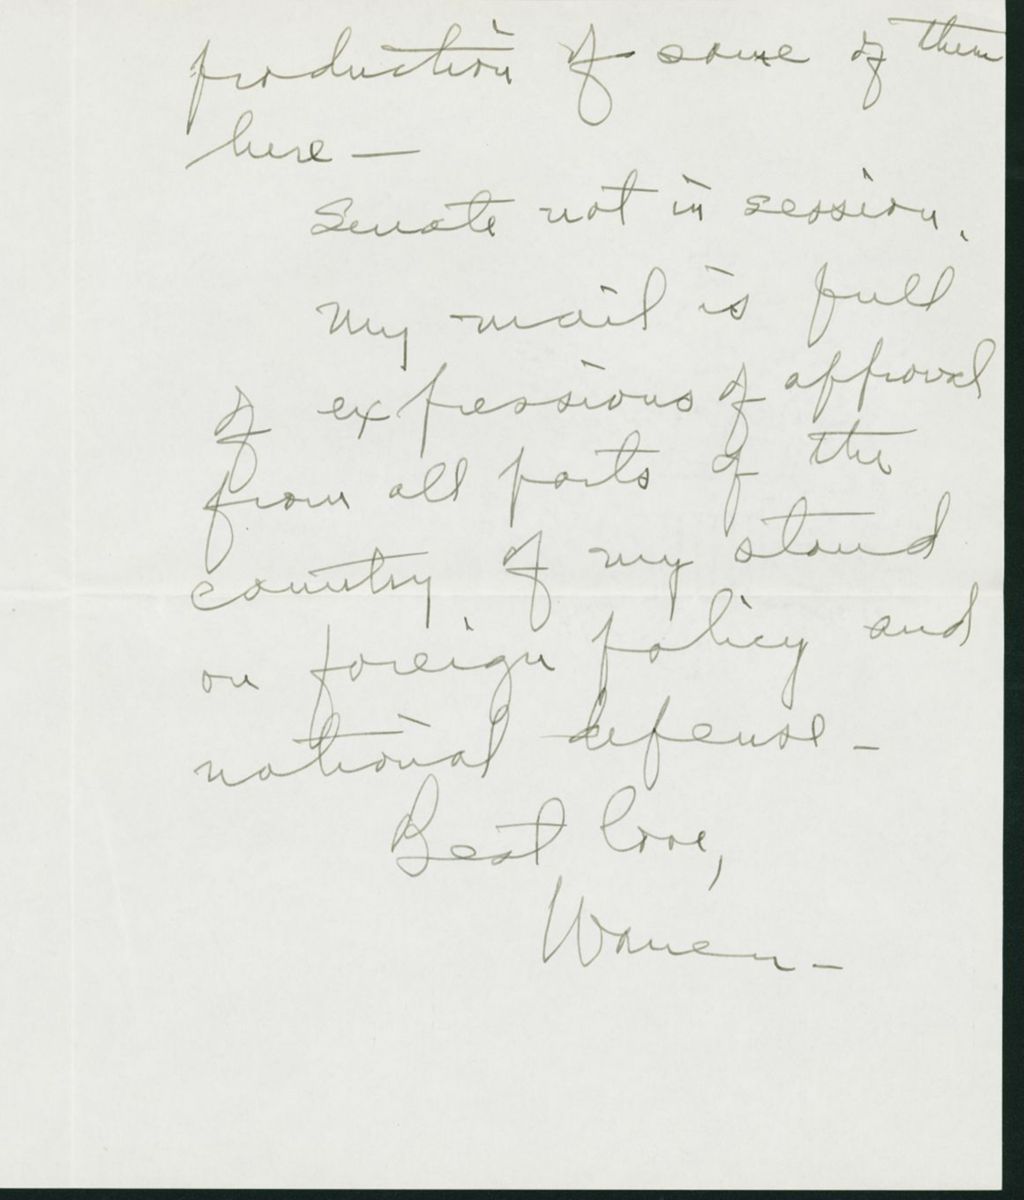 production of some of them
here —
Senate not in session.
My mail is full
of expressions of approval
from all parts of the
country of my stand
on foreign policy and
national defense —
Best love,
Warren —